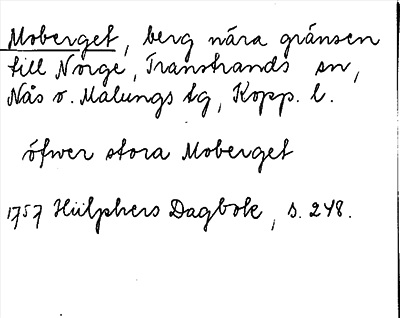 Moberget, berg nära gränsen
till Norge, Transtrands sn,
Nås o. Malungs tg, Kopp. l.
öfwer stora Moberget
1757 Hülphers Dagbok, s. 248.